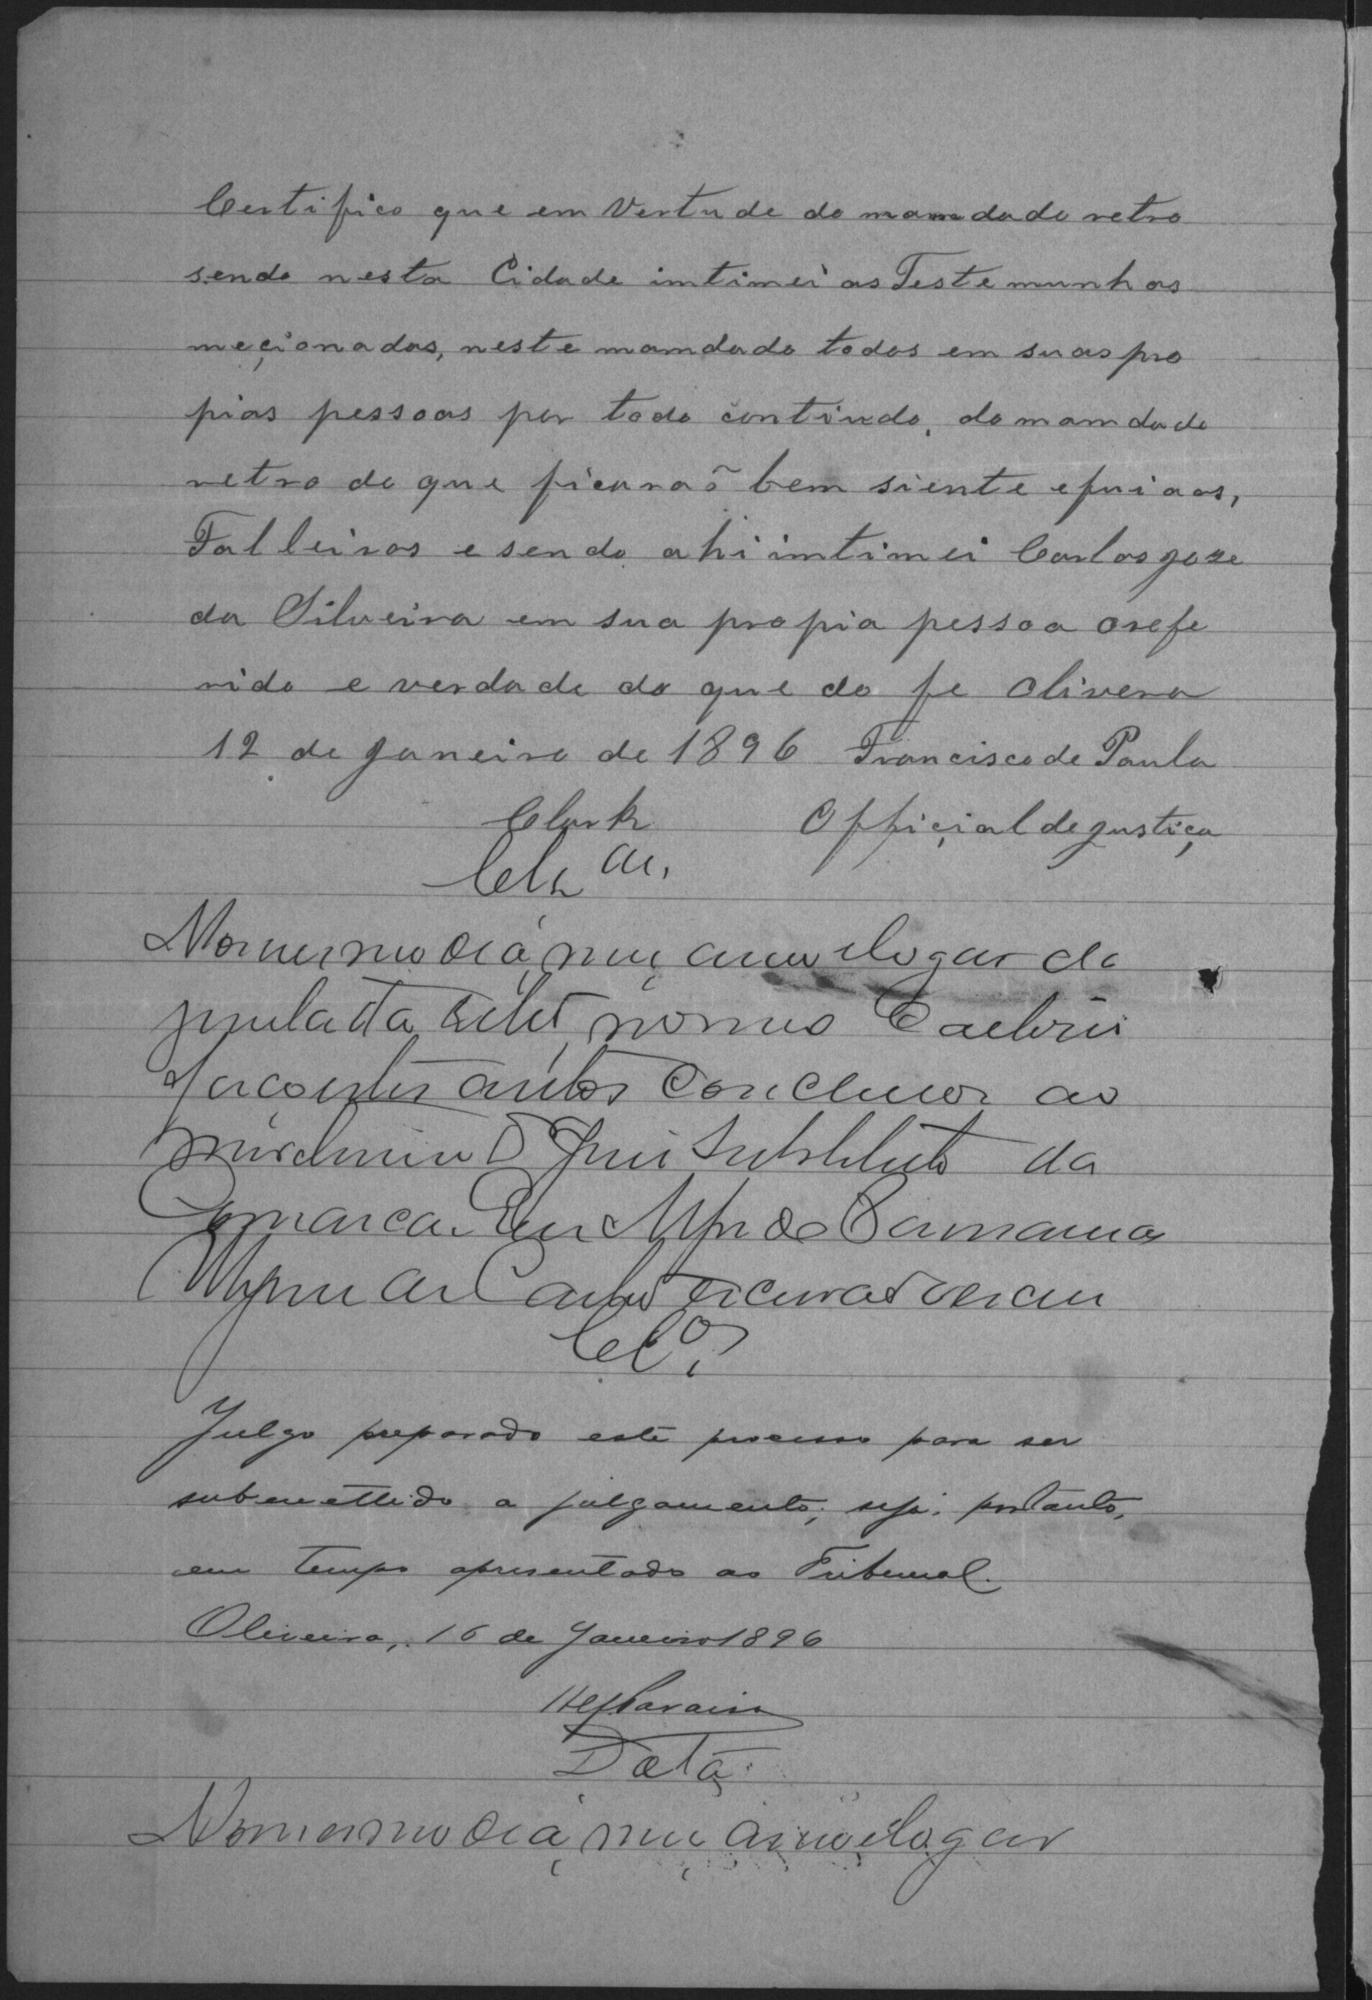 Certifico que em Vertude do mamdado retro
sendo nesta Cidade imtimei as Testemunhas
meçionadas, neste mamdado todos em suas pro
pias pessoas por todo contiudo, do mamdado
retro do que ficaraõ bem siente e fui aos,
Falleiros e sendo ahi imtimei Carlos joze
da Silveira em sua propia pessoa orefe
rido e verdade do que do fe Olivera
12 de Janeiro de 1896 Francisco de Paula
Clark Offiçial de justiça
Clz
No mesmo dia, mez anno e logar de
Faço estes autos Conclusos ao
Juiz Substituto da
Comarca. Eu
Escrivão
Cl.os
Julgo preparado este processo para ser
submettido a julgamento; seja, portanto,
em tempo apresentado ao Tribunal.
Oliveira, 16 de Janeiro 1896
Data
No mesmo dia, mez anno e logar